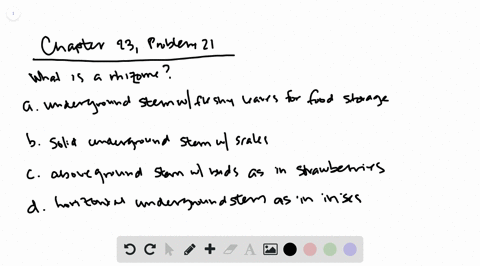 Chapter 23, Problem 21
What is a rhizome?
a. underground stem w/ fleshy leaves for food storage
b. solid underground stem w/ scales
c. aboveground stem w/ buds as in strawberries
d. horizontal underground stem as in irises